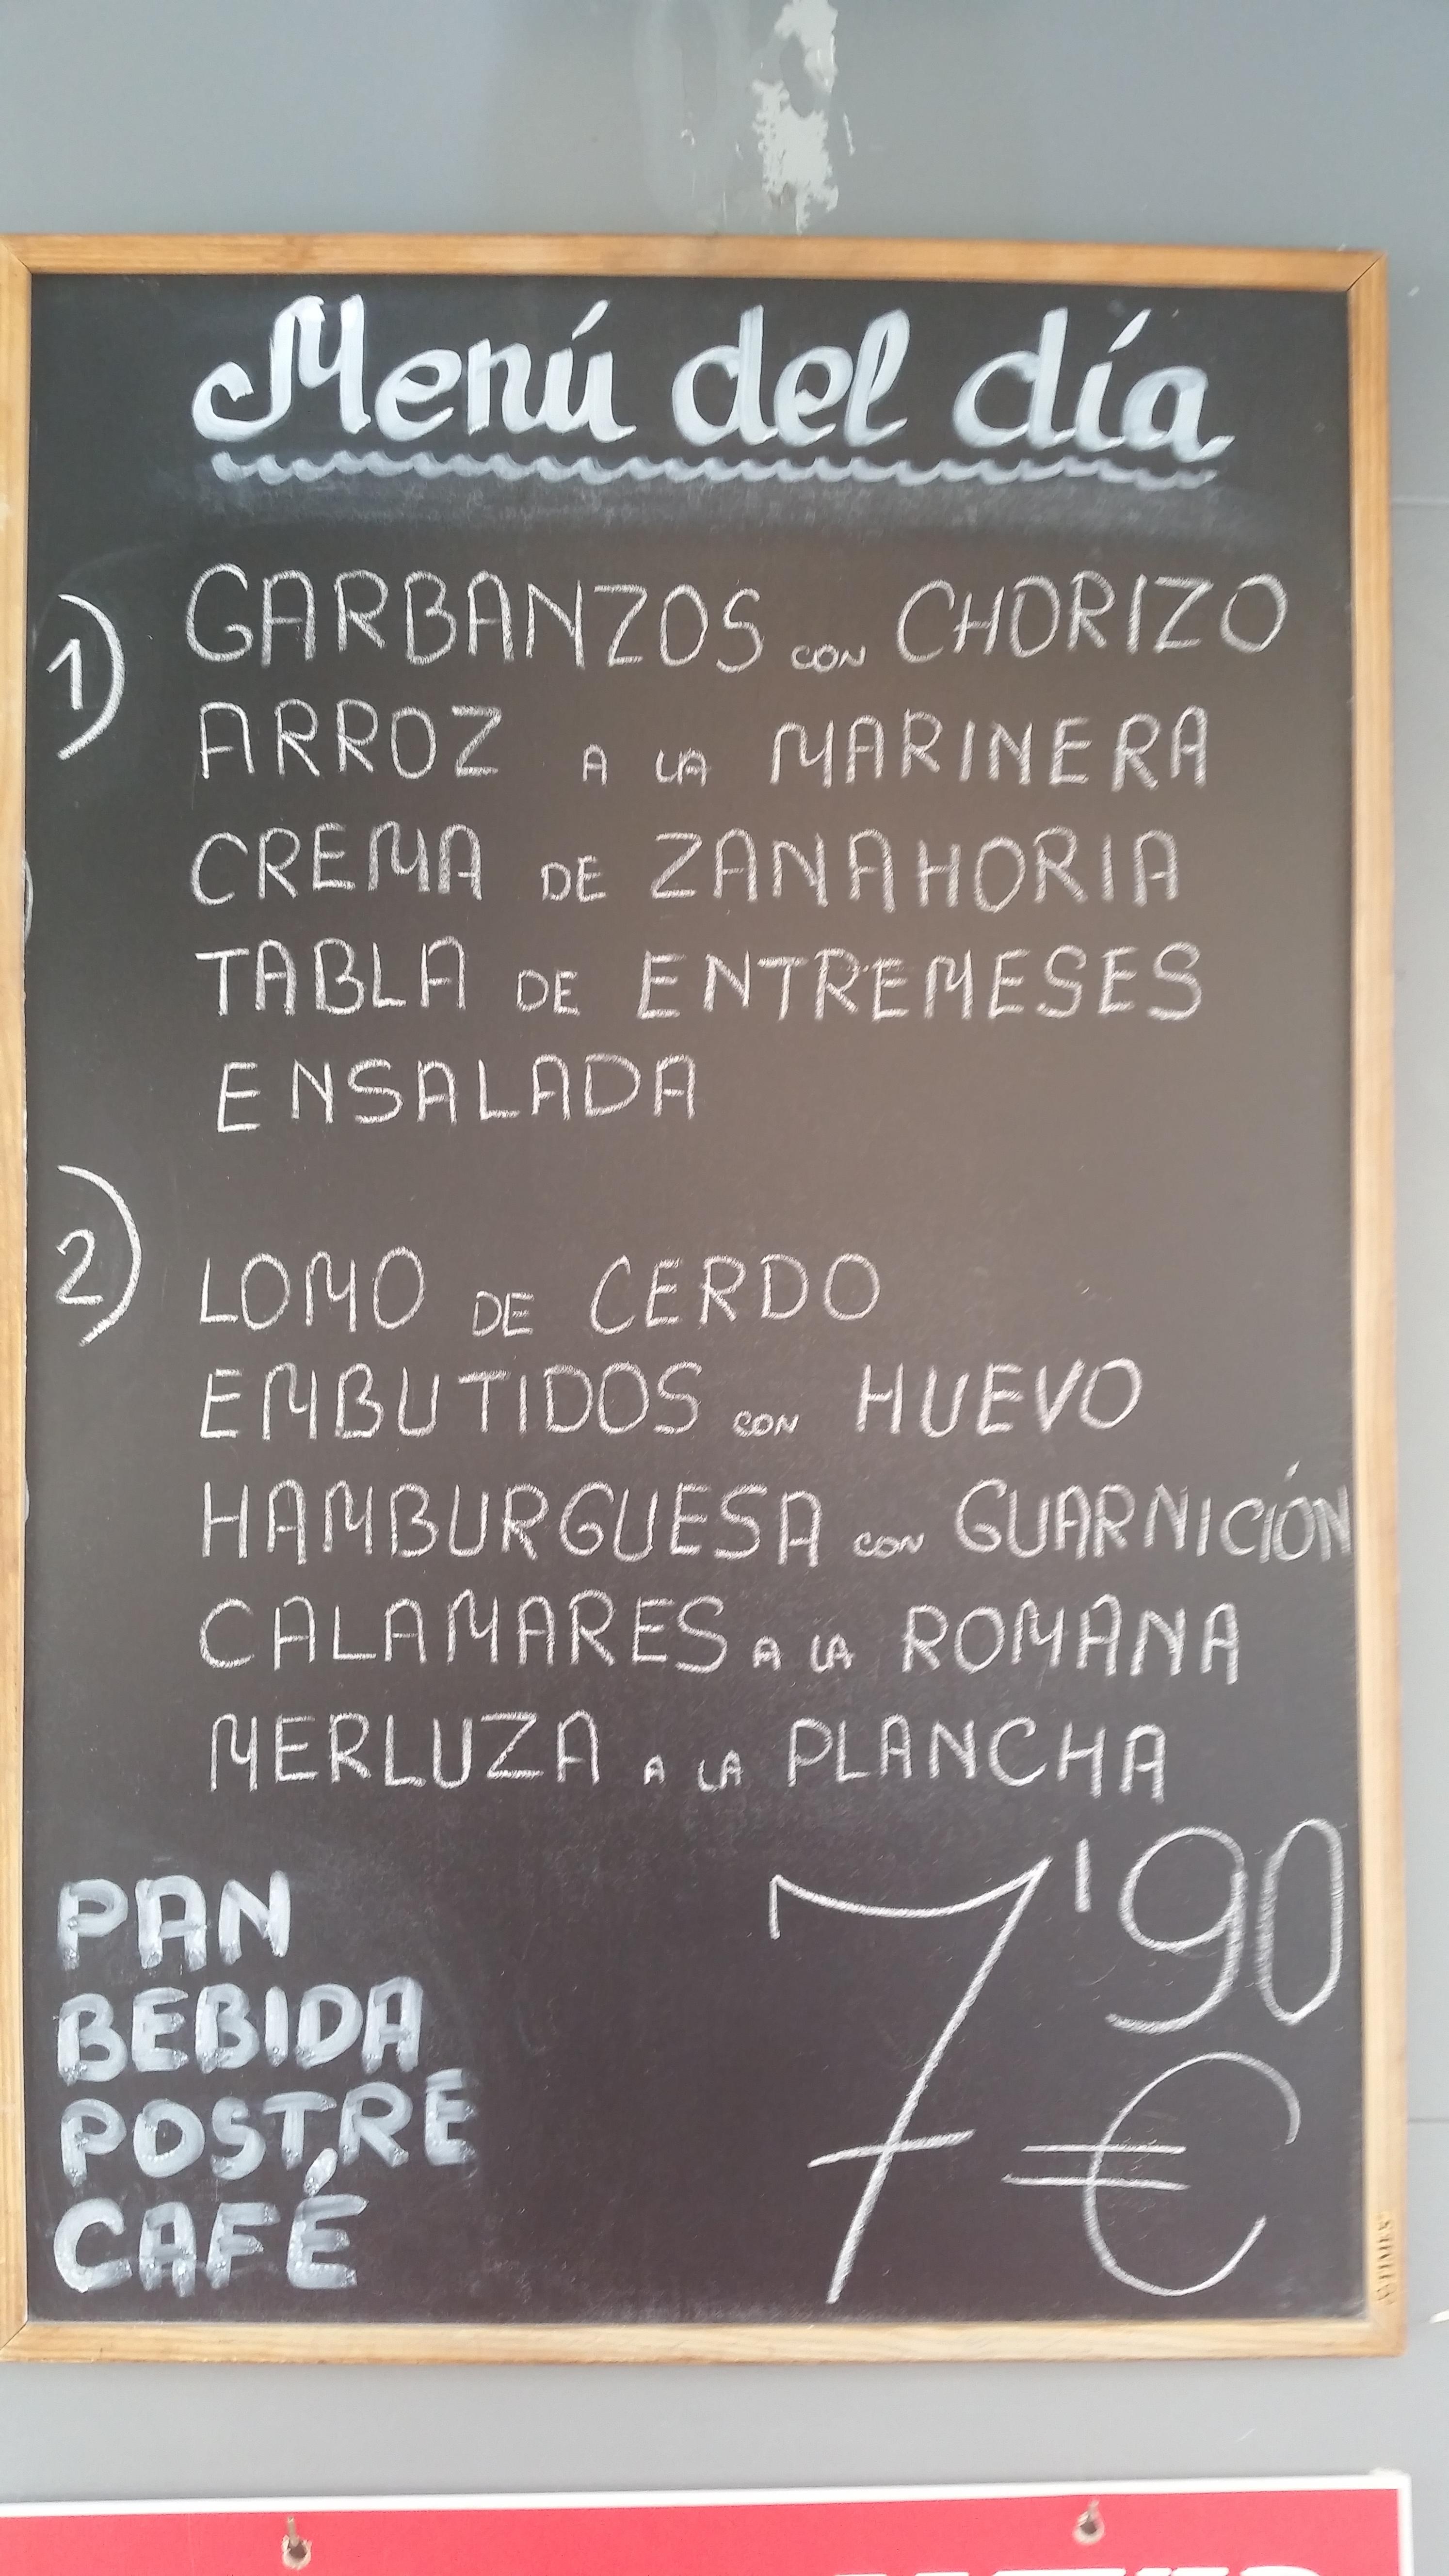 Menú del día
1) GARBANZOS CON CHORIZO
ARROZ A LA MARINERA
CREMA DE ZANAHORIA
TABLA DE ENTREMESES
ENSALADA
2) LOMO DE CERDO
EMBUTIDOS CON HUEVO
HAMBURGUESA CON GUARNICIÓN
CALAMARES A LA ROMANA
MERLUZA A LA PLANCHA
PAN
BEBIDA
POSTRE
CAFÉ
7'90
€